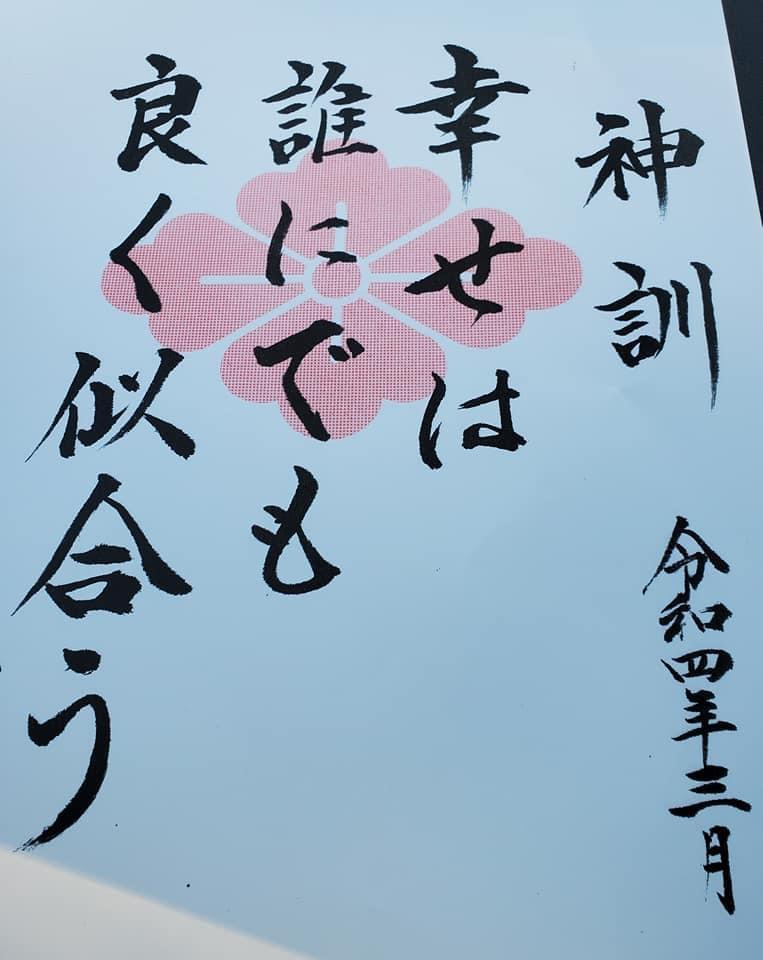 神訓
令和四年三月
幸せは
誰にでも
良く似合う